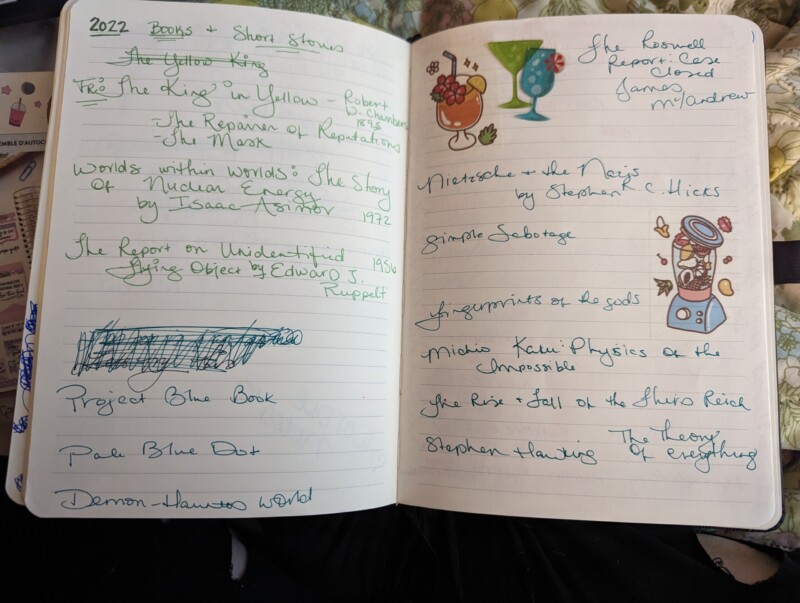 2022 Books + Short Stories
The Yellow King
The King in Yellow - Robert
W. Chambers
1895
- The Repairer of Reputations
- The Mask
Worlds within worlds: The Story
of Nuclear Energy
by Isaac Asimov 1972
The Report on Unidentified
Flying Object by Edward J. 1956
Ruppelt
Project Blue Book
Pale Blue Dot
Demon-Haunted World
The Roswell
Report: Case
Closed
James
McAndrew
Nietzsche + the Nazis
by Stephen R C. Hicks
Simple Sabotage
fingerprints of the gods
Michio Kaku: Physics of the
Impossible
The Rise + Fall of the Third Reich
Stephen Hawking The Theory
Of everything